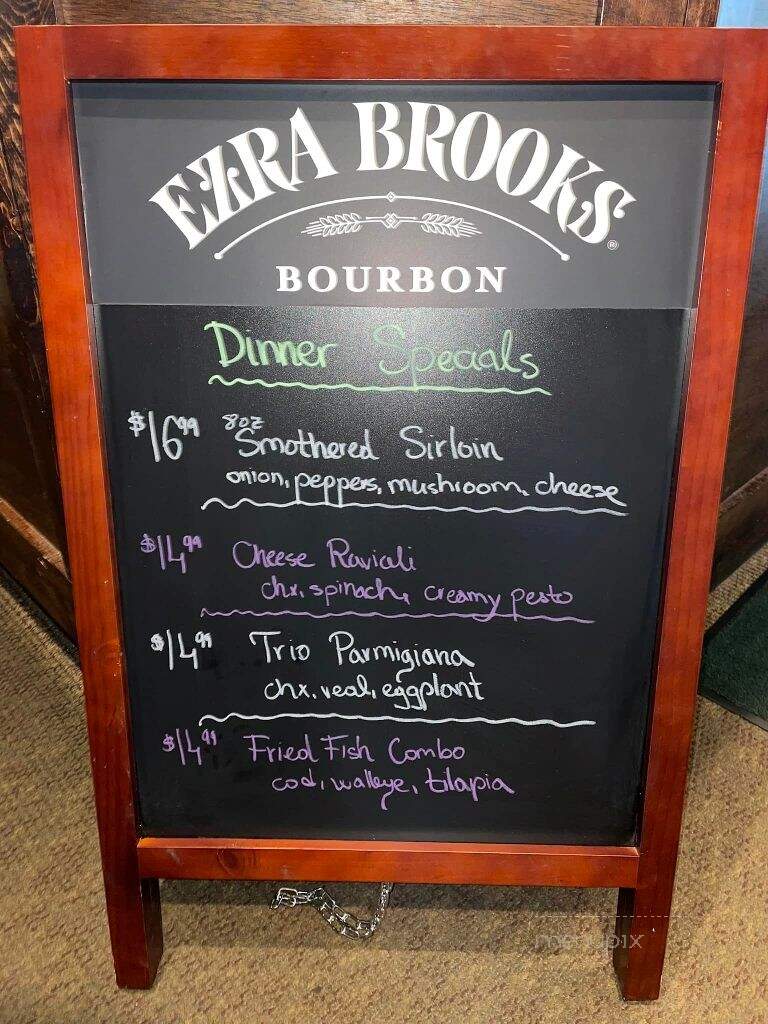 EZRA BROOKS®
BOURBON
Dinner Specials
$16.99 8oz Smothered Sirloin
onion, peppers, mushroom, cheese
$14.99 Cheese Raviali
chx, spinach, creamy pesto
$14.99 Trio Parmigiana
chx, veal, eggplant
$14.99 Fried Fish Combo
cod, walleye, tilapia
menupix